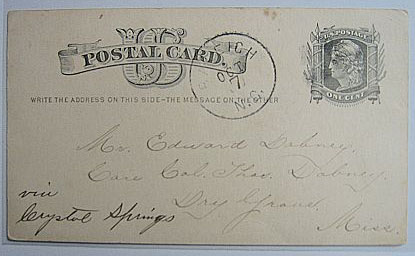 U S
POSTAL CARD.
WRITE THE ADDRESS ON THIS SIDE-THE MESSAGE ON THE OTHER
U.S. POSTAGE
ONE CENT
OCT
7
N.C.
Mr. Edward Dabney,
Care Col. Thos. Dabney,
Dry Grove,
Miss.
via
Crystal Springs